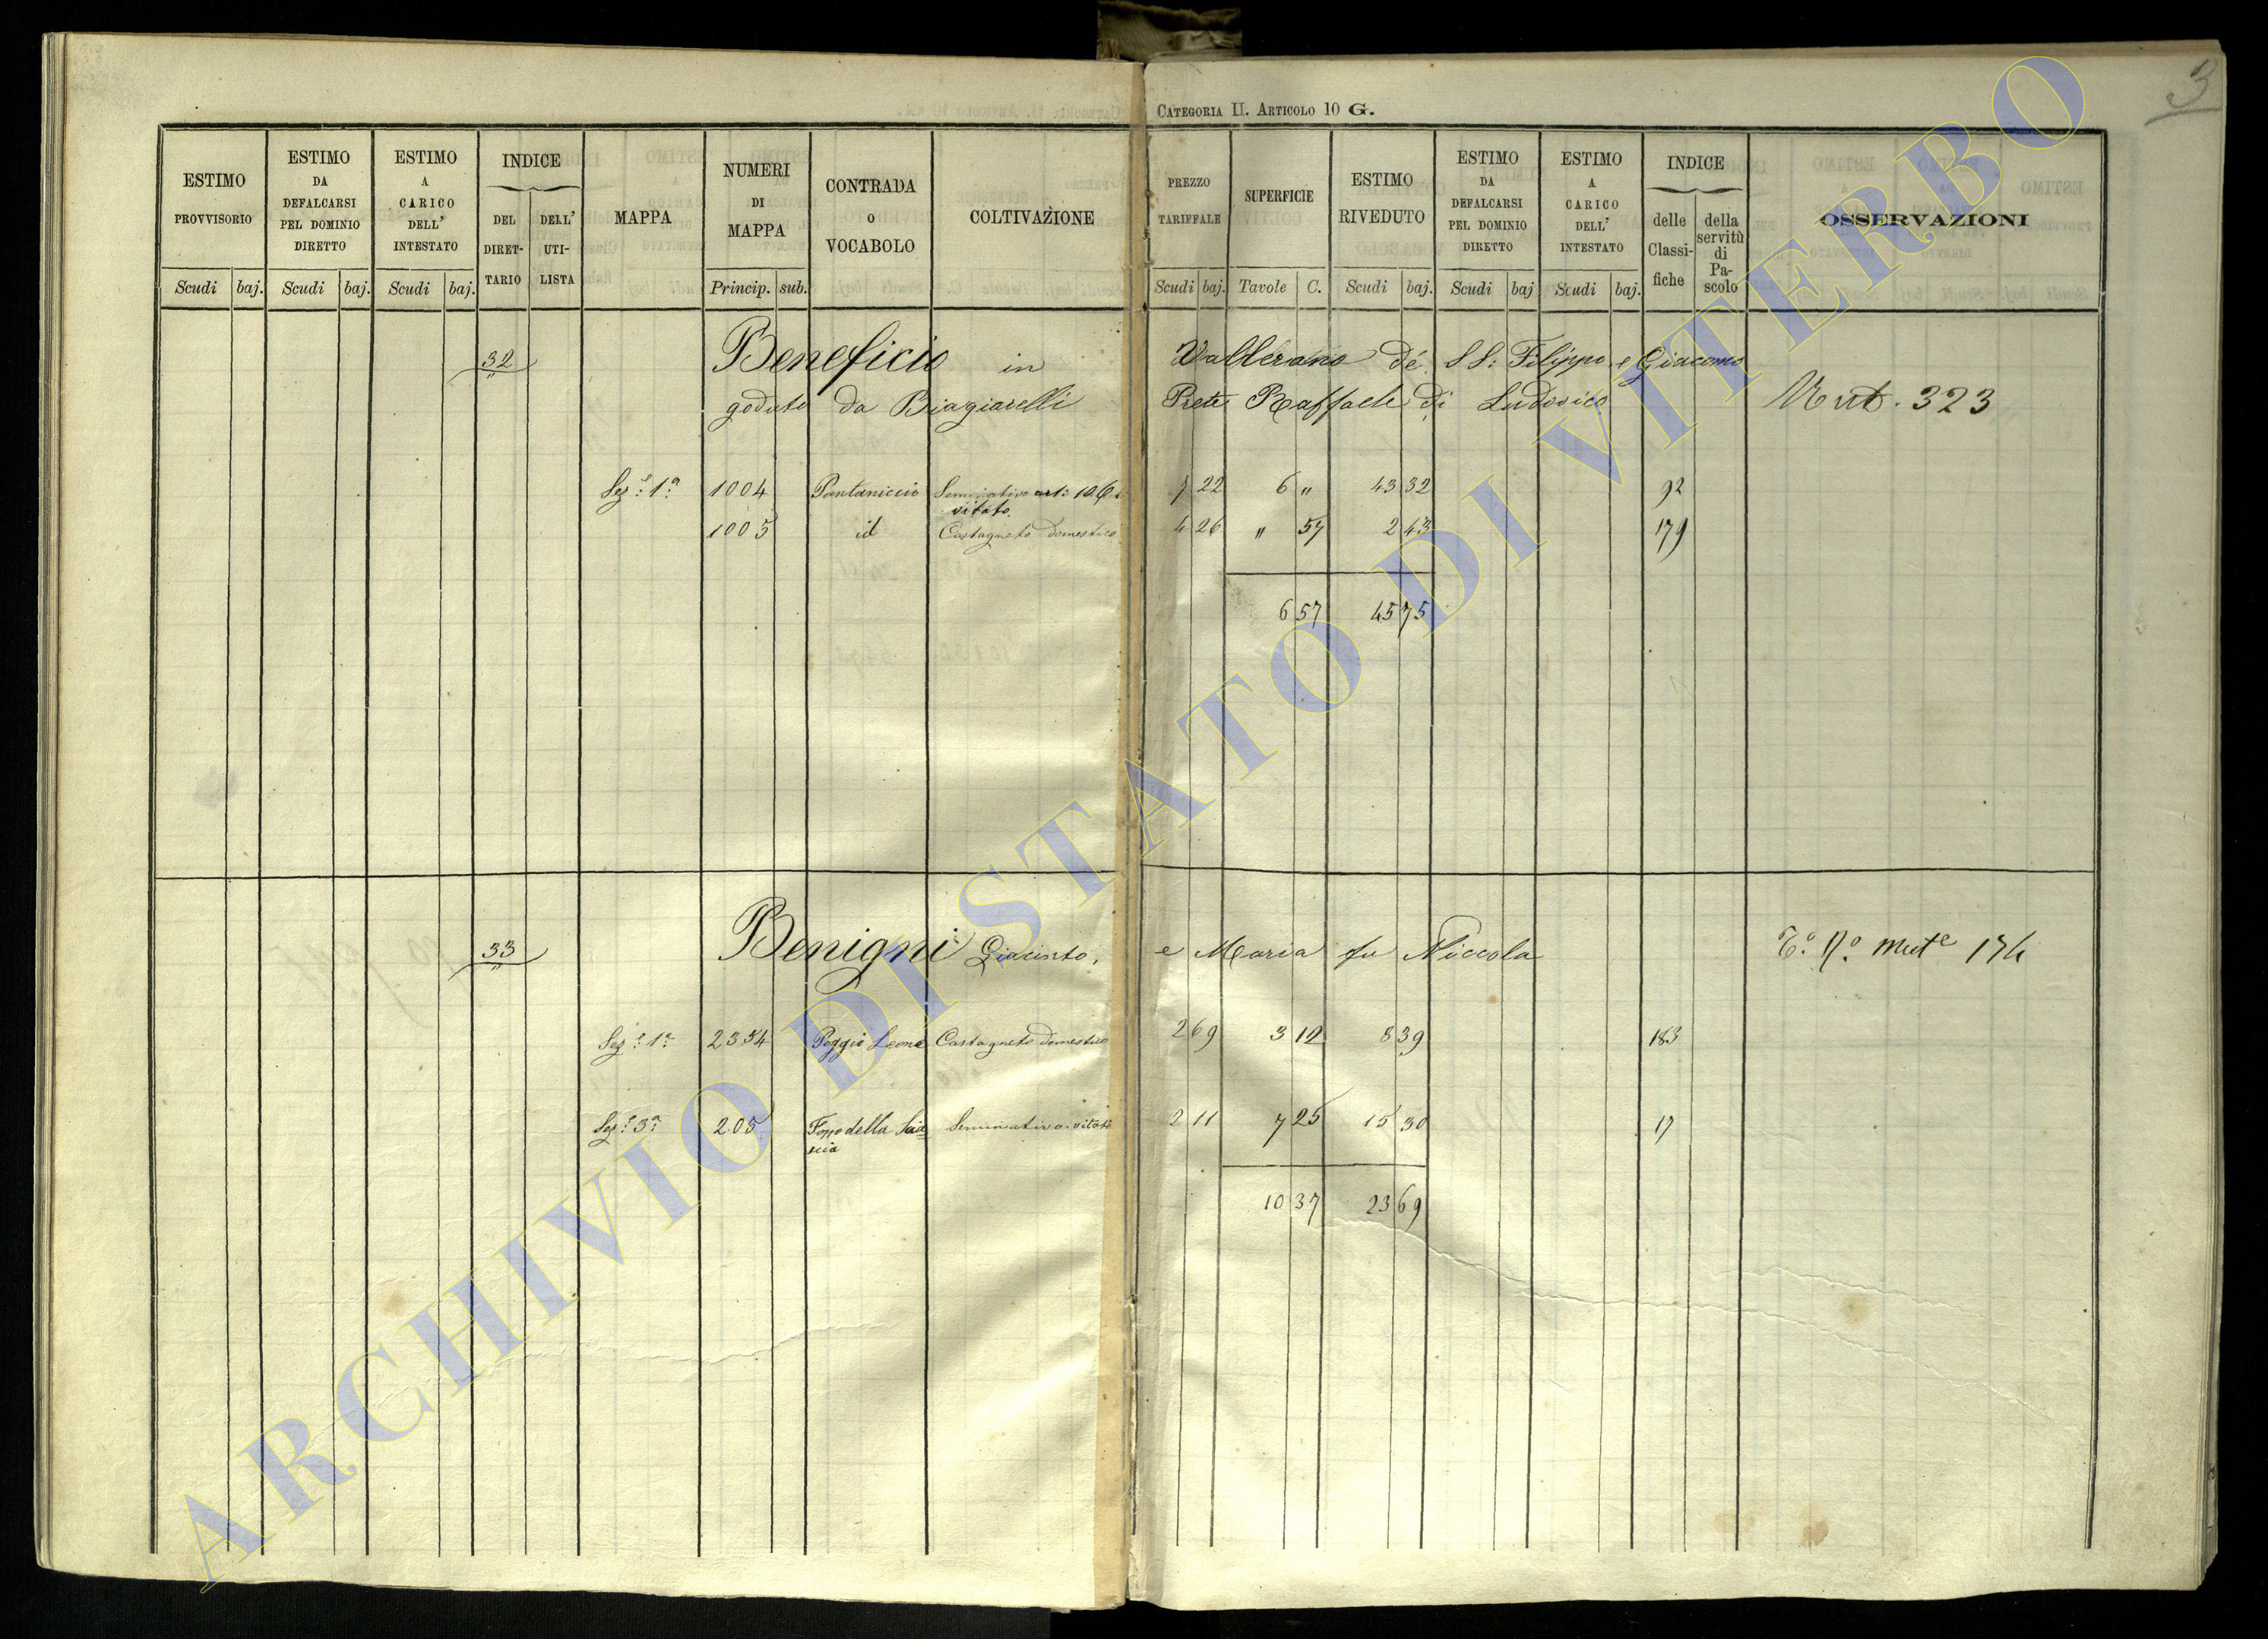 3
CATEGORIA II. ARTICOLO 10 G.
ESTIMO PROVVISORIO Scudi baj.
ESTIMO DA DEFALCARSI PEL DOMINIO DIRETTO Scudi baj.
ESTIMO A CARICO DELL' INTESTATO Scudi baj.
INDICE DEL DIRET-TARIO DELL' UTI-LISTA
MAPPA
NUMERI DI MAPPA Princip. sub.
CONTRADA O VOCABOLO
COLTIVAZIONE
PREZZO TARIFFALE Scudi baj.
SUPERFICIE Tavole C.
ESTIMO RIVEDUTO Scudi baj.
ESTIMO DA DEFALCARSI PEL DOMINIO DIRETTO Scudi baj
ESTIMO A CARICO DELL' INTESTATO Scudi baj.
INDICE delle Classi-fiche della servitù di Pa-scolo
OSSERVAZIONI
32 Beneficio in Vallerano de' SS: Filippo e Giacomo
goduto da Biagiarelli Prete Raffaele di Ludovico Mut. 323
Sez.e 1a 1004 Pantaniccio Seminativo vitato 7 22 6 " 43 32 92
1005 id Castagneto domestico 4 26 " 57 2 43 179
6 57 45 75
33 Benigni Giacinto, e Maria fu Niccola
Sez.e 1a 2354 Poggio Leone Castagneto domestico 2 69 3 12 8 39 183
Sez.e 3a 205 Fosso della Seminativo vitato 2 11 7 25 15 30 17
10 37 23 69
ARCHIVIO DI STATO DI VITERBO